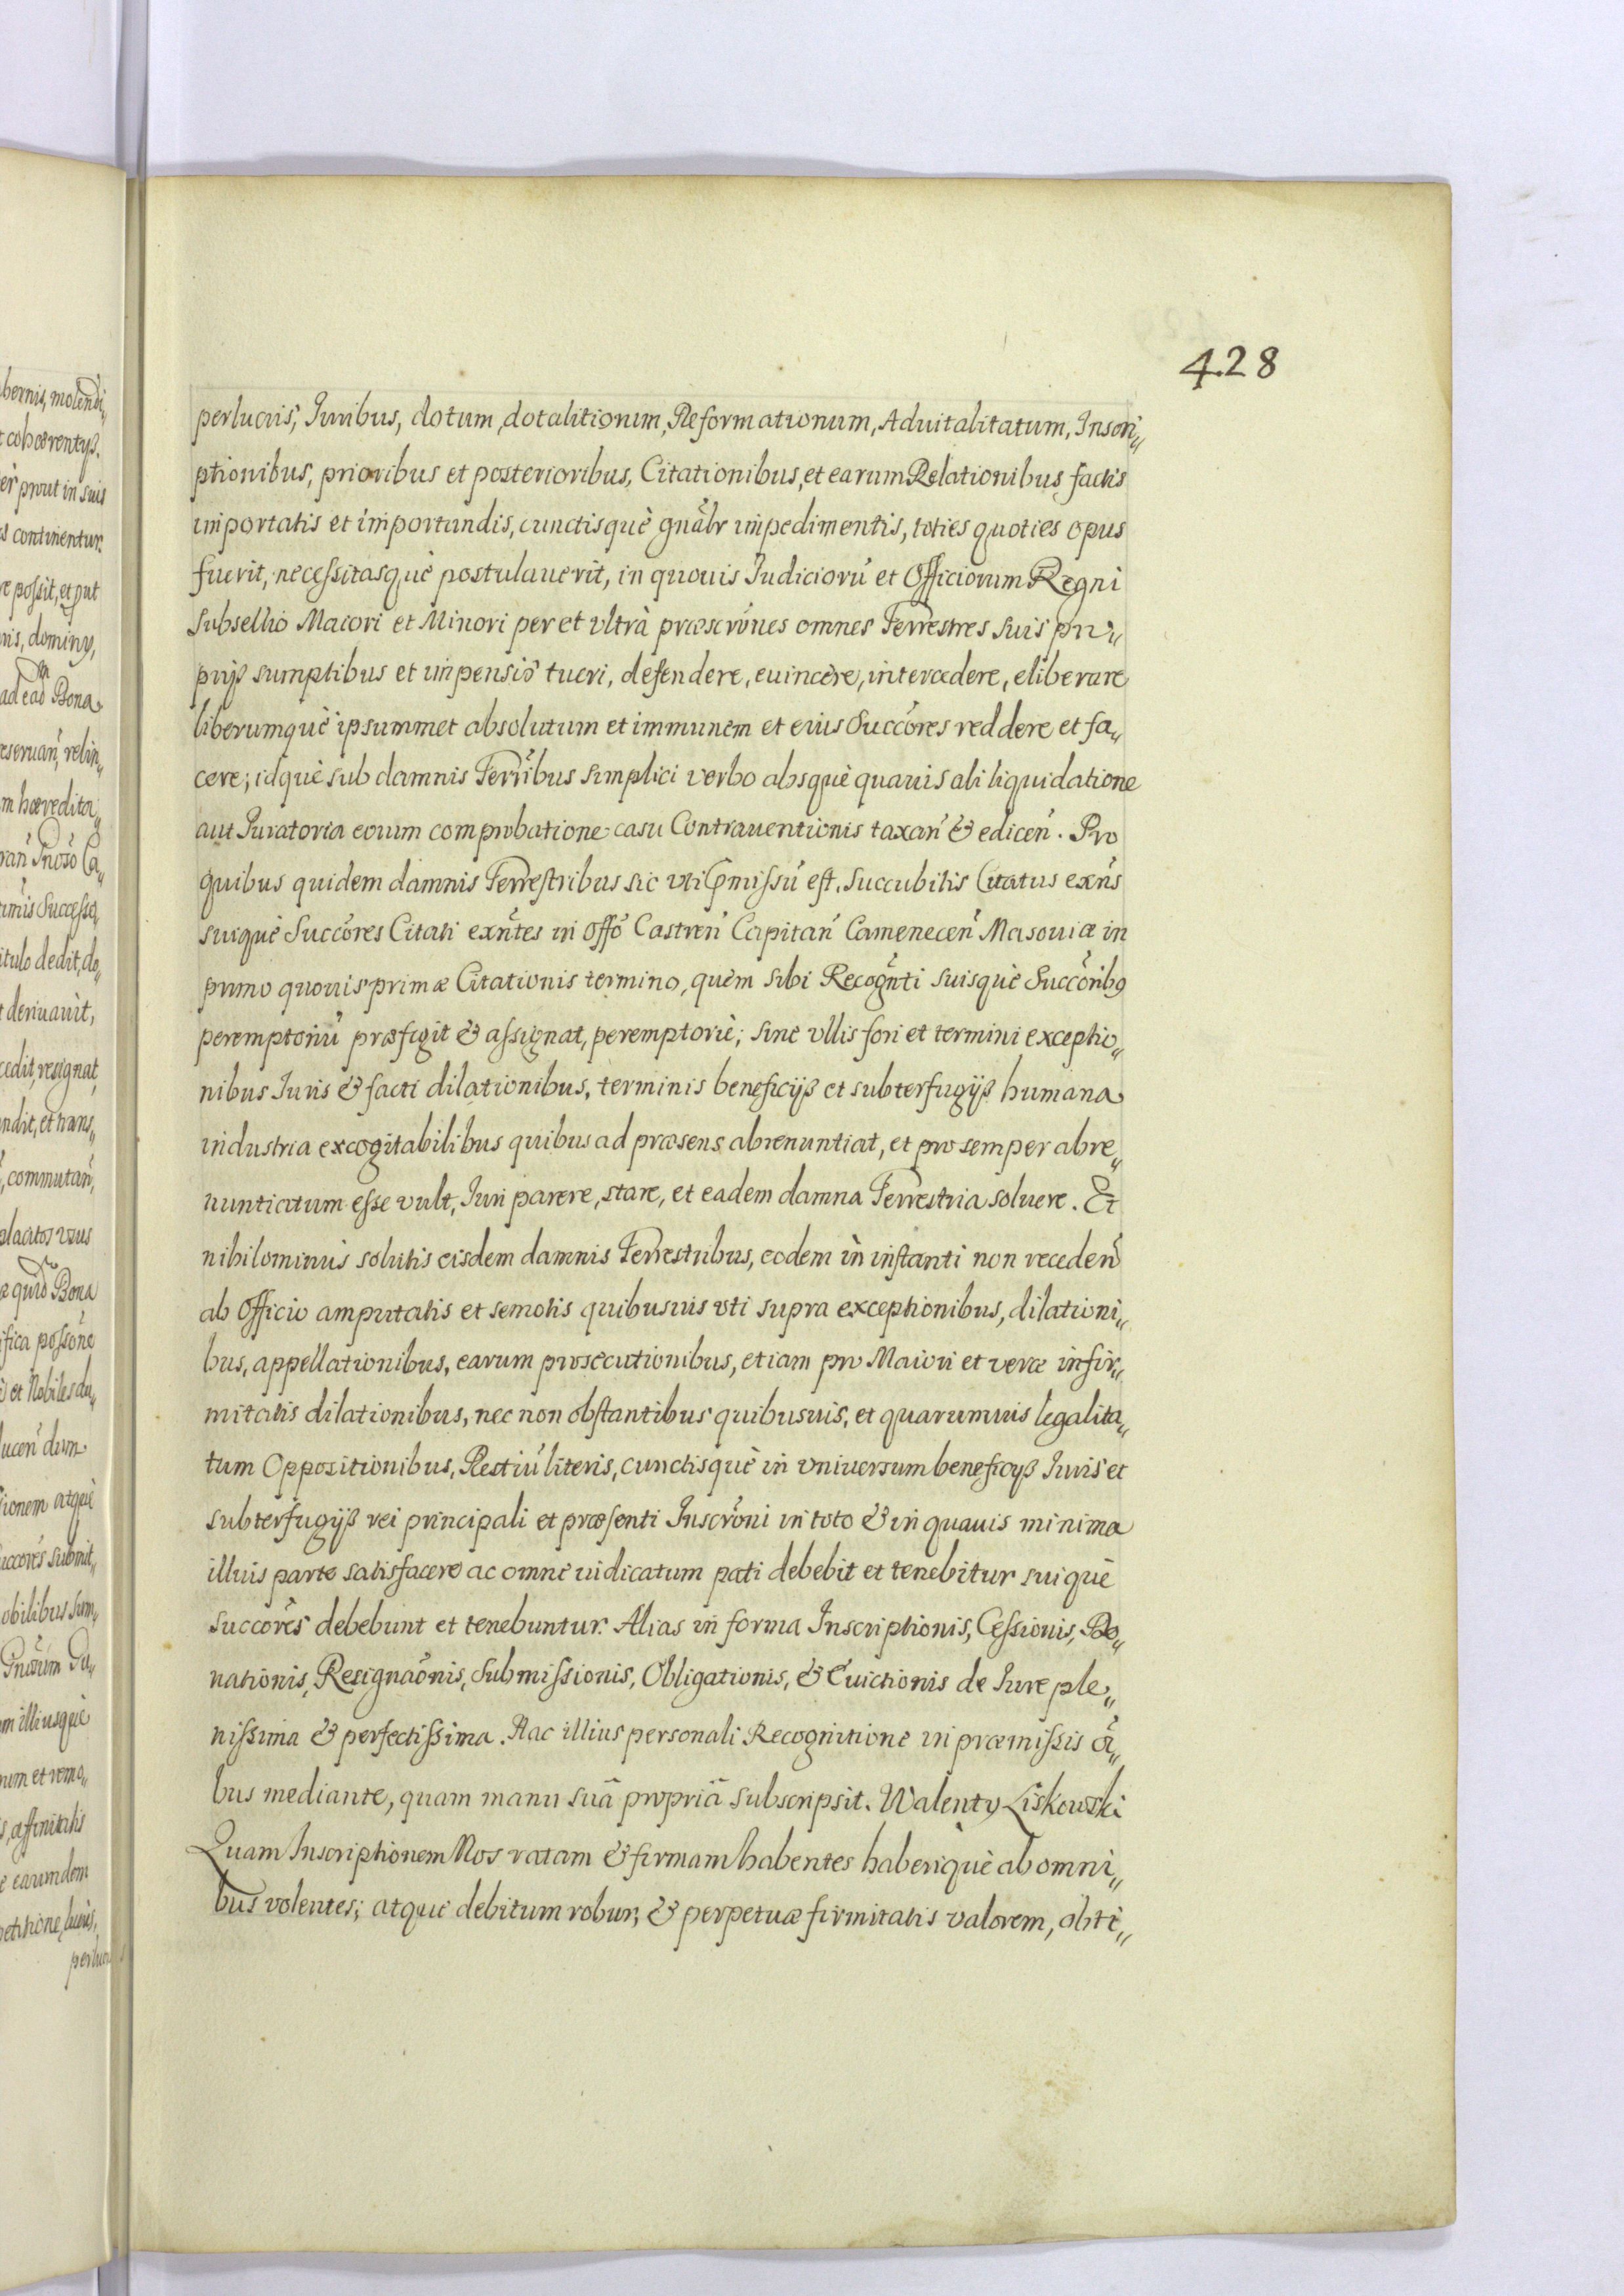 428
perlucris, Juribus, dotum, dotalitiorum, Reformationum, Aduitalitatum, Inscri„
ptionibus, prioribus et posterioribus, Citationibus, et earum Relationibus factis
importatis et importandis, cunctisquè gnãlr impedimentis, toties quoties opus
fuerit, necessitasquè postulauerit, in quouis Judiciorũ et Officiorum Regni
Subsellio Maiori et Minori per et vltrà præscrõnes omnes Terrestres suis pro„
prijß sumptibus et impensis tueri, defendere, euincere, intercedere, eliberare
liberumquè ipsummet absolutum et immunem et eius Succõres reddere et fa„
cere; idquè sub damnis Terrĩbus simplici verbo absquè quauis ali liquidatione
aut Iuratoria eorum comprobatione casu Contrauentionis taxañ & ediceñ. Pro
quibus quidem damnis Terrestribus sic vti p̃missũ est, succubitis Citatus exñs
suiquè Succõres Citati exñtes in Offõ Castreñ Capitañ Cameneceñ Masouiæ in
primo quouis primæ Citationis termino, quem sibi Recogñti suisquè Succõribꝰ
peremptoriũ præfigit & assignat, peremptoriè; sine vllis fori et termini exceptio„
nibus Iuris & facti dilationibus, terminis beneficijß et subterfugijß humana
industria excogitabilibus quibus ad præsens abrenuntiat, et pro semper abre„
nuntiatum esse vult, Iuri parere, stare, et eadem damna Terrestria soluere. Et
nihilominus solutis eisdem damnis Terrestribus, eodem in instanti non recedeñ
ab Officio amputatis et semotis quibusuis vti supra exceptionibus, dilationi„
bus, appellationibus, earum prosecutionibus, etiam pro Maiori et veræ infir„
mitatis dilationibus, nec non obstantibus quibusuis, et quarumuis legalita„
tum Oppositionibus, Restiũ literis, cunctisquè in vniuersum beneficijß Iuris et
subterfugijß rei principali et præsenti Inscrõni in toto & in quauis minima
illius parte satisfacere ac omne iudicatum pati debebit et tenebitur suiquè
succõres debebunt et tenebuntur. Alias in forma Inscriptionis, Cessionis, Do„
nationis, Resignaõnis, Submissionis, Obligationis, & Euictionis de Iure ple„
nissima & perfectissima. Hac illius personali Recognitione in præmissis õi„
bus mediante, quam manu suã propriã subscripsit. Walenty Liskowski
Quam Inscriptionem Nos ratam & firmam habentes haberiquè ab omni„
bus volentes; atquè debitum robur, & perpetuæ firmitatis valorem, obti„